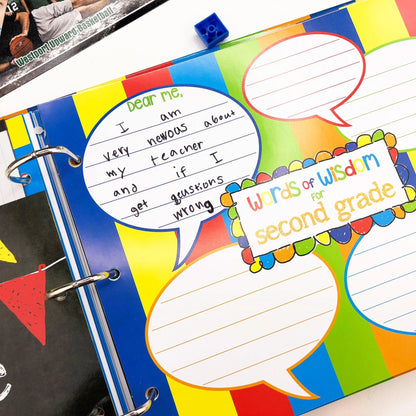 Westport Upward Basketball
Dear me,
I am
very nervous about
my teacher
and if I
get qeustions
wrong
Words of Wisdom
for
second grade
e